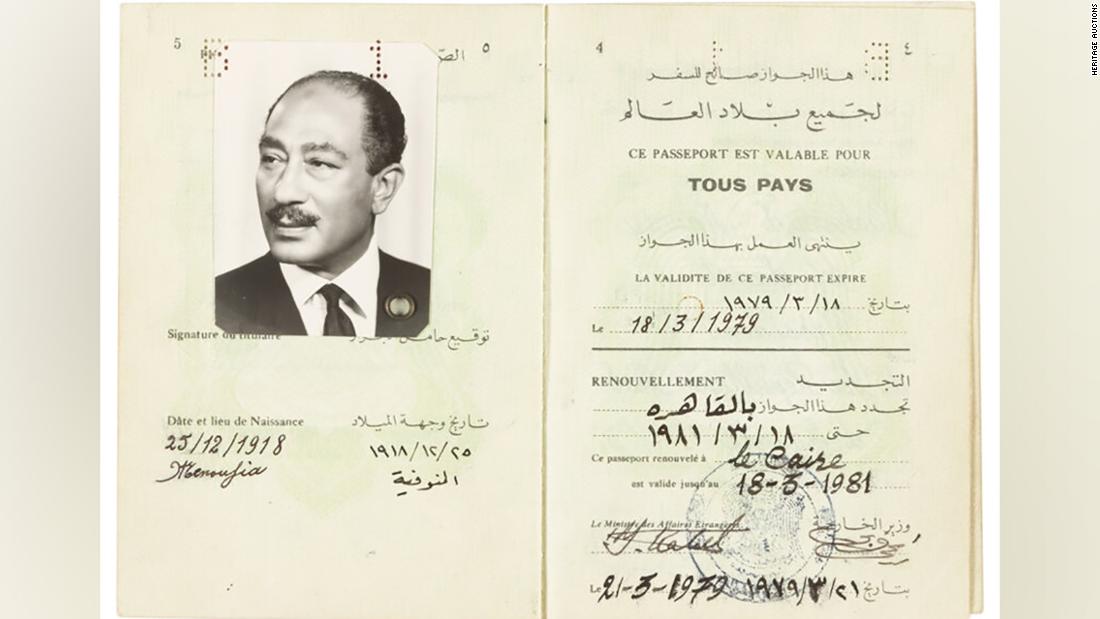 5
٥
الصـ
Signature du titulaire
توقيع حامل
Dâte et lieu de Naissance
تاريخ وجهة الميلاد
25/12/1918
١٩١٨/١٢/٢٥
Menoufia
المنوفية
4
٤
هذا الجواز صالح للسفر
لجميع بلاد العالم
CE PASSEPORT EST VALABLE POUR
TOUS PAYS
ينتهى العمل بهذا الجواز
LA VALIDITE DE CE PASSEPORT EXPIRE
بتاريخ ١٩٧٩/٣/١٨
Le 18/3/1979
RENOUVELLEMENT التجديد
تجدد هذا الجواز بالقاهره
حتى ١٩٨١/٣/١٨
Ce passeport renouvelé à le Caire
est valide jusqu'au 18-3-1981
Le Ministre des Affaires Etrangères وزير الخارجية
Le 21-3-1979 بتاريخ ١٩٧٩/٣/٢١
HERITAGE AUCTIONS